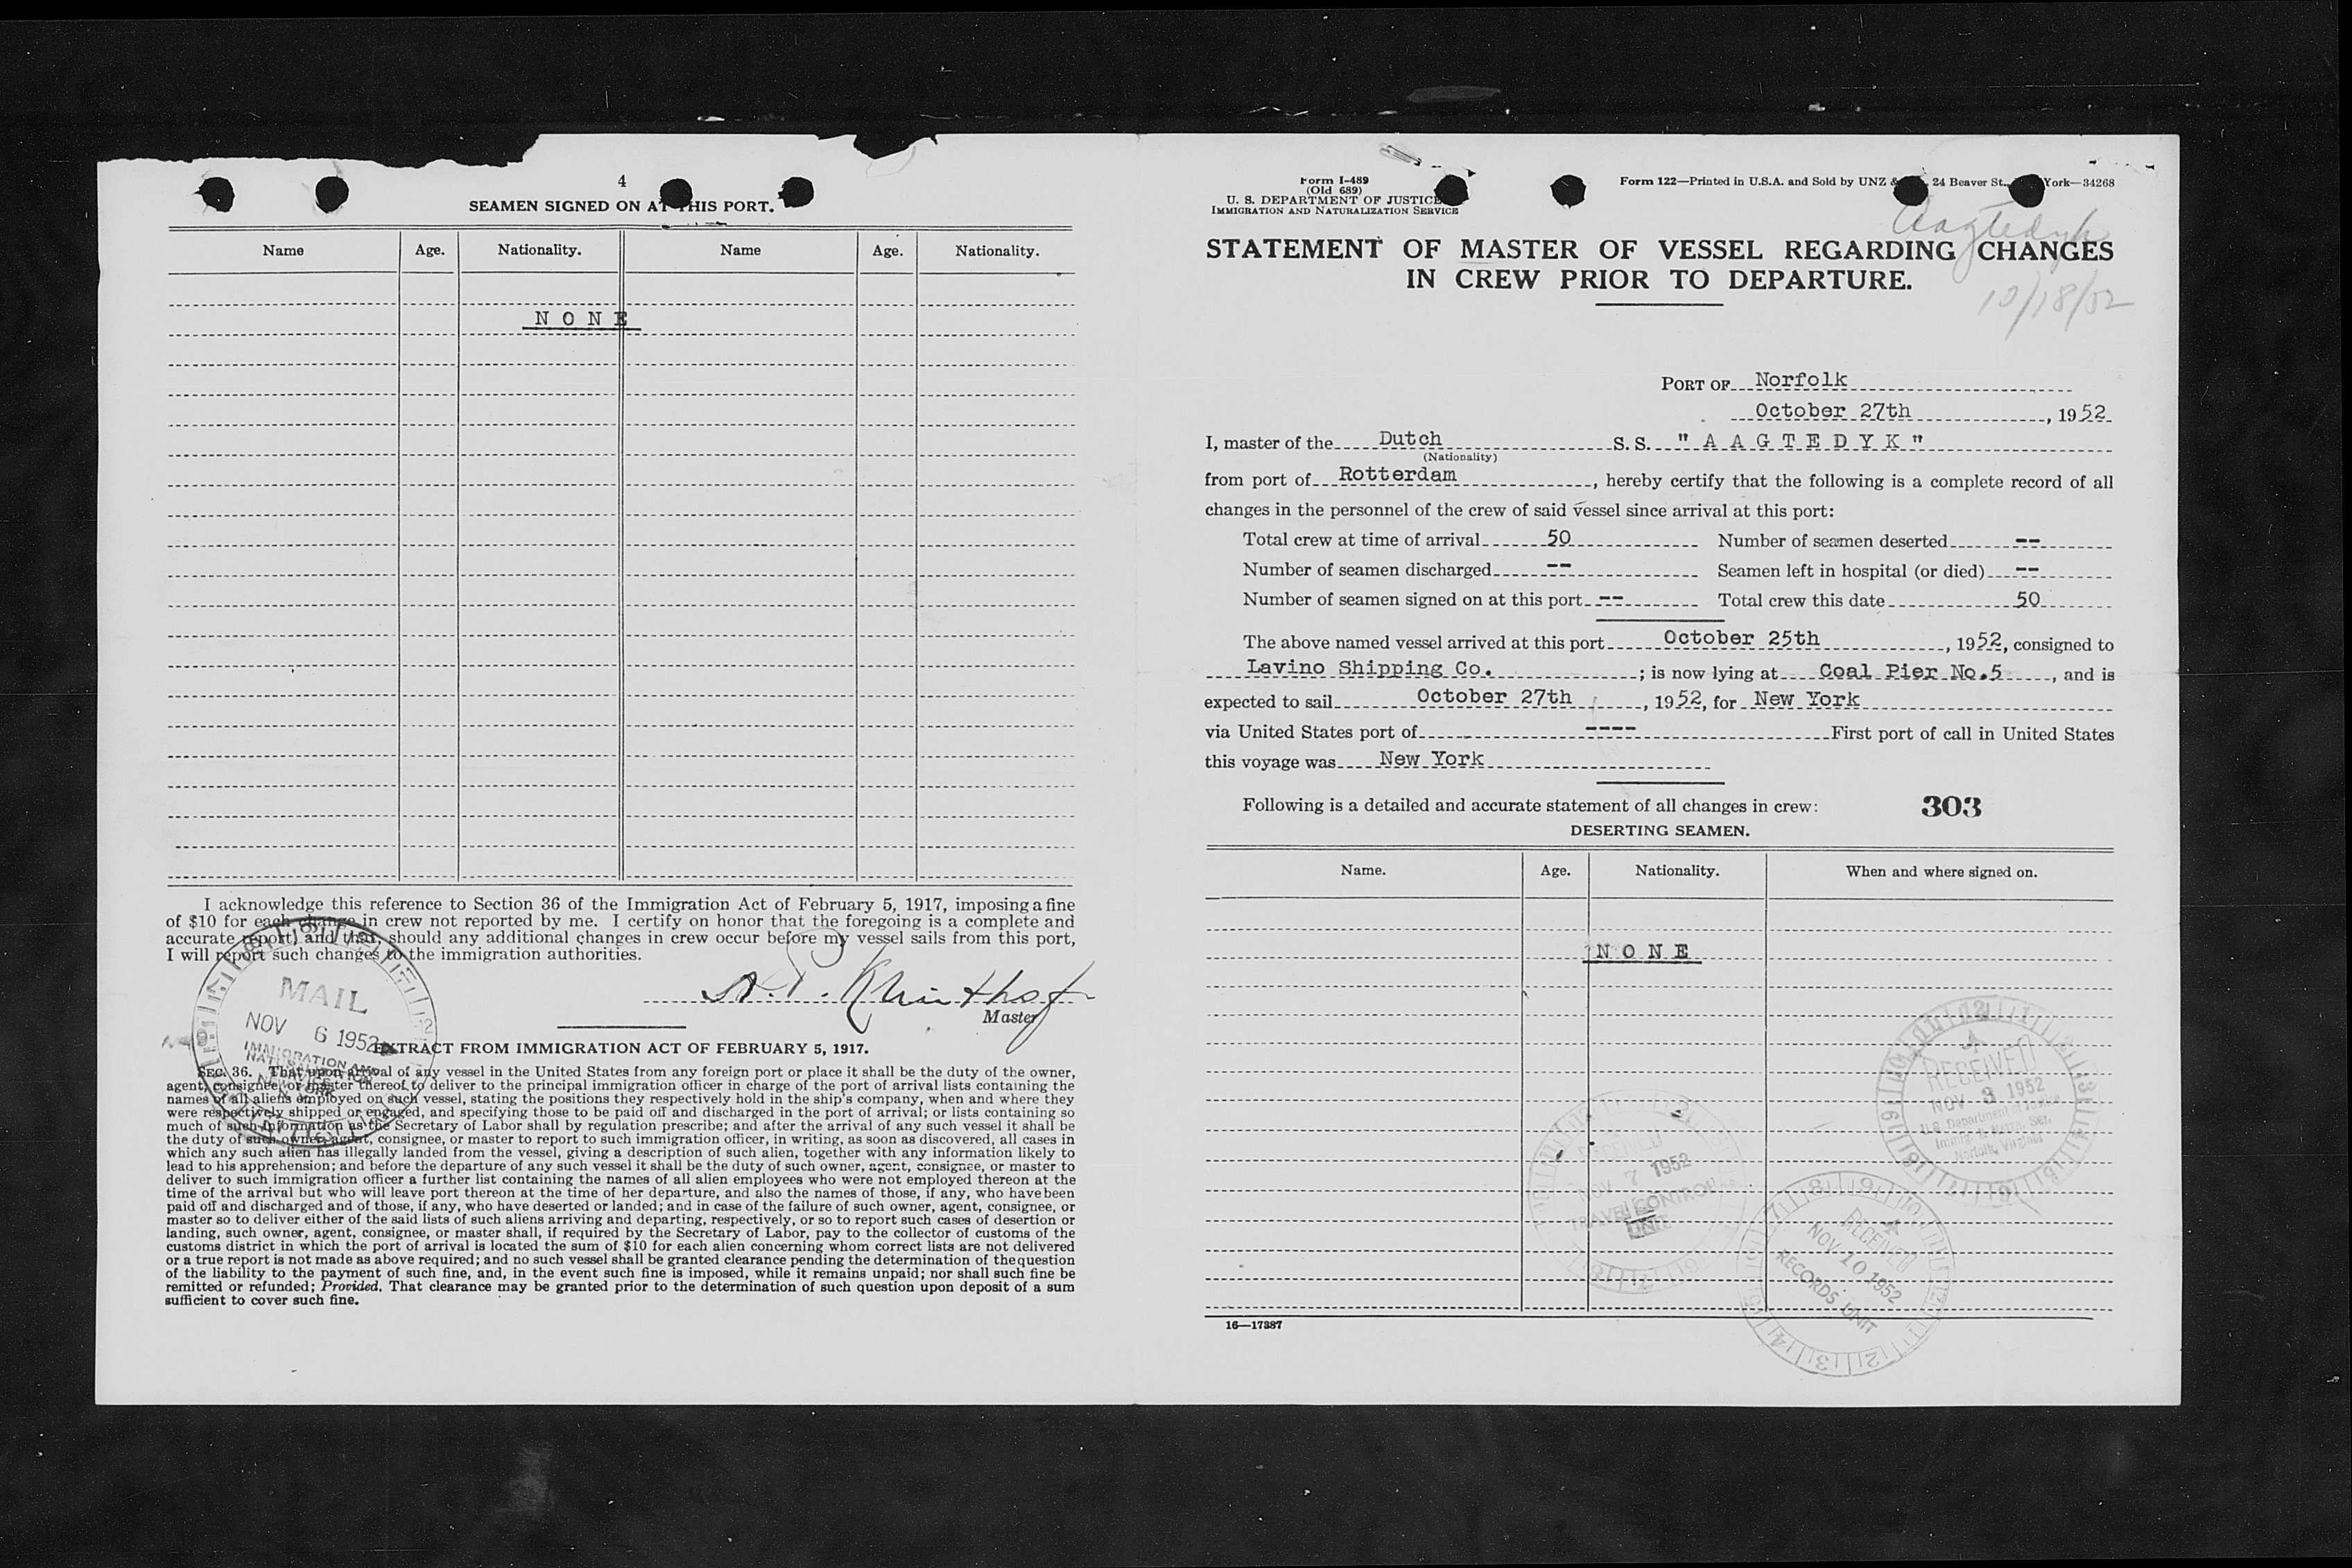 4
SEAMEN SIGNED ON AT THIS PORT.
Name Age. Nationality. Name Age. Nationality.
NONE
I acknowledge this reference to Section 36 of the Immigration Act of February 5, 1917, imposing a fine
of $10 for each change in crew not reported by me. I certify on honor that the foregoing is a complete and
accurate report, and that, should any additional changes in crew occur before my vessel sails from this port,
I will report such changes to the immigration authorities.
Master
MAIL
NOV 6 1952
IMMIGRATION AND
EXTRACT FROM IMMIGRATION ACT OF FEBRUARY 5, 1917.
SEC. 36. That upon arrival of any vessel in the United States from any foreign port or place it shall be the duty of the owner,
agent, consignee, or master thereof to deliver to the principal immigration officer in charge of the port of arrival lists containing the
names of all aliens employed on such vessel, stating the positions they respectively hold in the ship's company, when and where they
were respectively shipped or engaged, and specifying those to be paid off and discharged in the port of arrival; or lists containing so
much of such information as the Secretary of Labor shall by regulation prescribe; and after the arrival of any such vessel it shall be
the duty of such owner, agent, consignee, or master to report to such immigration officer, in writing, as soon as discovered, all cases in
which any such alien has illegally landed from the vessel, giving a description of such alien, together with any information likely to
lead to his apprehension; and before the departure of any such vessel it shall be the duty of such owner, agent, consignee, or master to
deliver to such immigration officer a further list containing the names of all alien employees who were not employed thereon at the
time of the arrival but who will leave port thereon at the time of her departure, and also the names of those, if any, who have been
paid off and discharged and of those, if any, who have deserted or landed; and in case of the failure of such owner, agent, consignee, or
master so to deliver either of the said lists of such aliens arriving and departing, respectively, or so to report such cases of desertion or
landing, such owner, agent, consignee, or master shall, if required by the Secretary of Labor, pay to the collector of customs of the
customs district in which the port of arrival is located the sum of $10 for each alien concerning whom correct lists are not delivered
or a true report is not made as above required; and no such vessel shall be granted clearance pending the determination of the question
of the liability to the payment of such fine, and, in the event such fine is imposed, while it remains unpaid; nor shall such fine be
remitted or refunded; Provided, That clearance may be granted prior to the determination of such question upon deposit of a sum
sufficient to cover such fine.
Form I-489
(Old 689)
U. S. DEPARTMENT OF JUSTICE
IMMIGRATION AND NATURALIZATION SERVICE
Form 122—Printed in U.S.A. and Sold by UNZ & 24 Beaver St., York—34268
Aagtedyk
10/18/52
STATEMENT OF MASTER OF VESSEL REGARDING CHANGES
IN CREW PRIOR TO DEPARTURE.
PORT OF Norfolk
October 27th, 1952
I, master of the Dutch S. S. "AAGTEDYK"
(Nationality)
from port of Rotterdam, hereby certify that the following is a complete record of all
changes in the personnel of the crew of said vessel since arrival at this port:
Total crew at time of arrival 50 Number of seamen deserted --
Number of seamen discharged -- Seamen left in hospital (or died) --
Number of seamen signed on at this port -- Total crew this date 50
The above named vessel arrived at this port October 25th, 1952, consigned to
Lavino Shipping Co.; is now lying at Coal Pier No.5, and is
expected to sail October 27th, 1952, for New York
via United States port of ---- First port of call in United States
this voyage was New York
Following is a detailed and accurate statement of all changes in crew: 303
DESERTING SEAMEN.
Name. Age. Nationality. When and where signed on.
NONE
RECEIVED
NOV 3 1952
U.S. Department of Justice
Immig. & Natzn. Ser.
Norfolk, Virginia
RECEIVED
NOV 7 1952
TRAVEL CONTROL
UNIT
RECEIVED
NOV 10 1952
RECORDS UNIT
16—17387